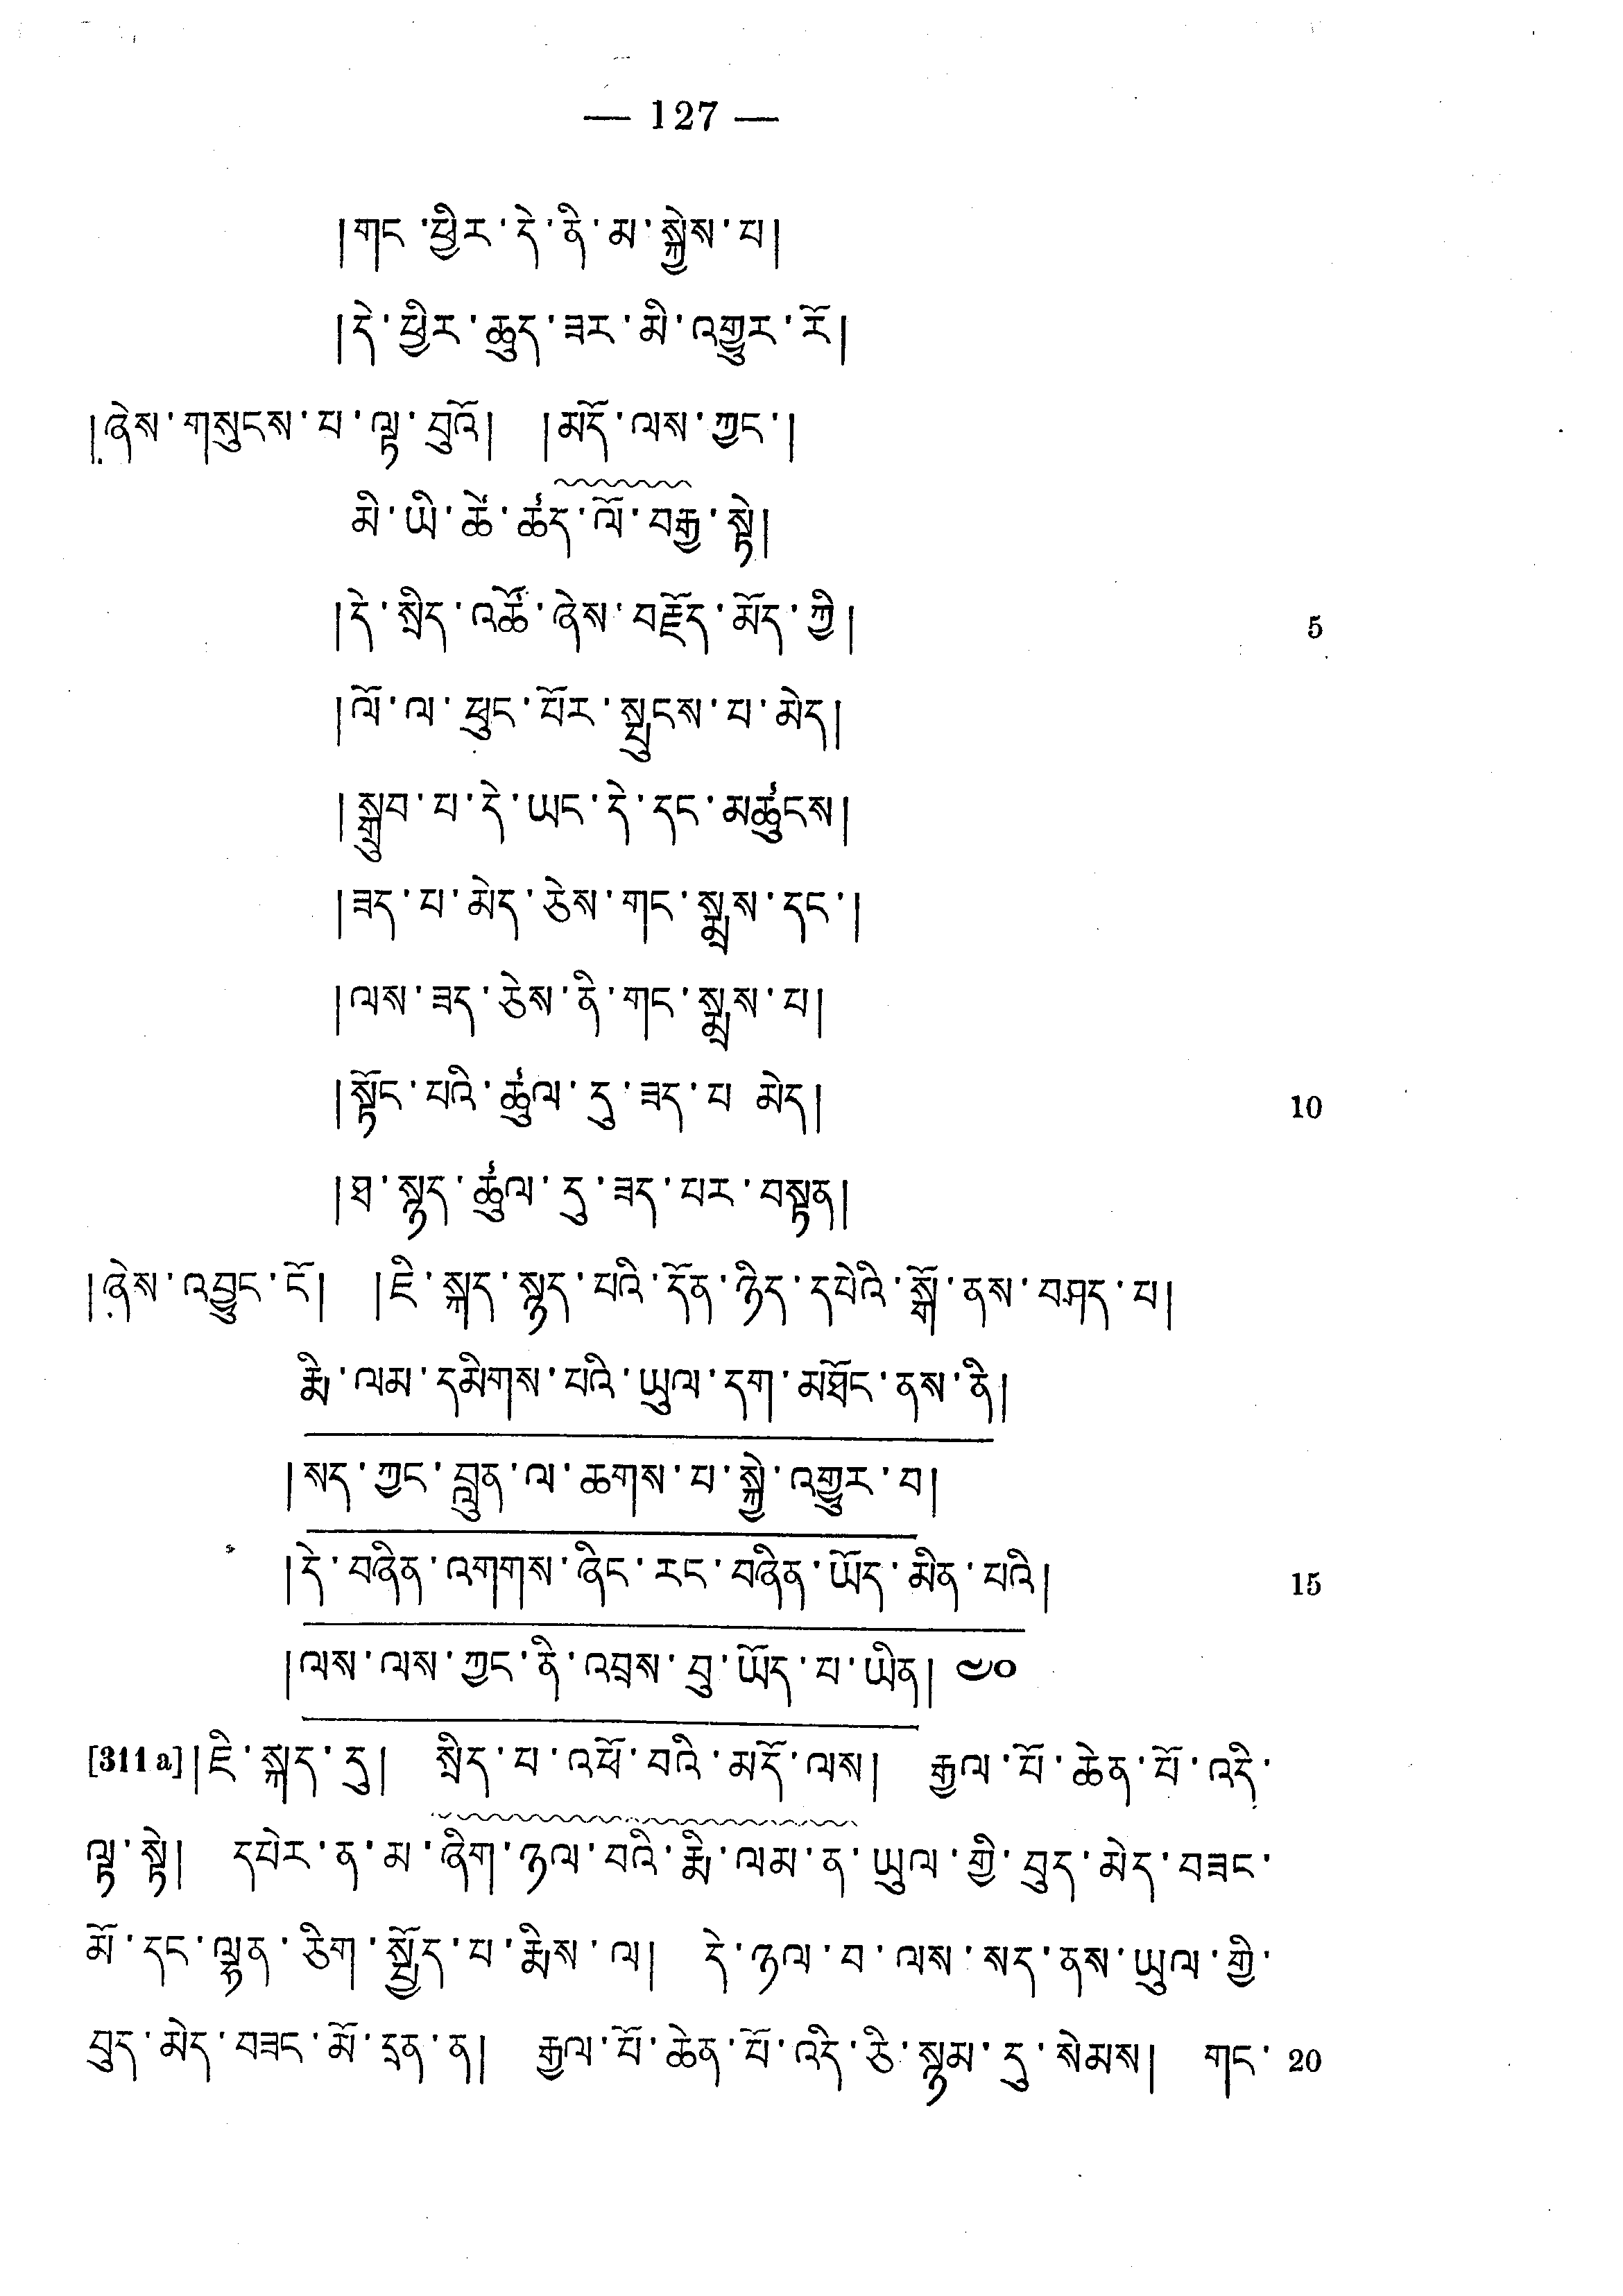 — 127 —
།གང་ཕྱིར་དེ་ནི་མ་སྐྱེས་པ།
།དེ་ཕྱིར་ཆུད་ཟར་མི་འགྱུར་རོ།
།ཞེས་གསུངས་པ་ལྟ་བུའོ། །མདོ་ལས་ཀྱང་།
མི་ཡི་ཚེ་ཚད་ལོ་བརྒྱ་སྟེ།
།དེ་སྲིད་འཚོ་ཞེས་བརྗོད་མོད་ཀྱི། 5
།ལོ་ལ་ཕུང་པོར་སྤུངས་པ་མེད།
།སྒྲུབ་པ་དེ་ཡང་དེ་དང་མཚུངས།
།ཟད་པ་མེད་ཅེས་གང་སྨྲས་དང་།
།ལས་ཟད་ཅེས་ནི་གང་སྨྲས་པ།
།སྟོང་པའི་ཚུལ་དུ་ཟད་པ མེད། 10
།ཐ་སྙད་ཚུལ་དུ་ཟད་པར་བསྟན།
།ཞེས་འབྱུང་ངོ། །ཇི་སྐད་སྙད་པའི་དོན་ཉིད་དཔེའི་སྒོ་ནས་བཤད་པ།
རྨི་ལམ་དམིགས་པའི་ཡུལ་དག་མཐོང་ནས་ནི།
།སད་ཀྱང་བླུན་ལ་ཆགས་པ་སྐྱེ་འགྱུར་བ།
།དེ་བཞིན་འགགས་ཞིང་རང་བཞིན་ཡོད་མིན་པའི། 15
།ལས་ལས་ཀྱང་ནི་འབྲས་བུ་ཡོད་པ་ཡིན། ༤༠
[311a]།ཇི་སྐད་དུ། སྲིད་པ་འཕོ་བའི་མདོ་ལས། རྒྱལ་པོ་ཆེན་པོ་འདི་
ལྟ་སྟེ། དཔེར་ན་མ་ཞིག་ཉལ་བའི་རྨི་ལམ་ན་ཡུལ་གྱི་བུད་མེད་བཟང་
མོ་དང་ལྷན་ཅིག་སྤྱོད་པ་རྨིས་ལ། དེ་ཉལ་བ་ལས་སད་ནས་ཡུལ་གྱི་
བུད་མེད་བཟང་མོ་དྲན་ན། རྒྱལ་པོ་ཆེན་པོ་འདི་ཅི་སྙམ་དུ་སེམས། གང་ 20